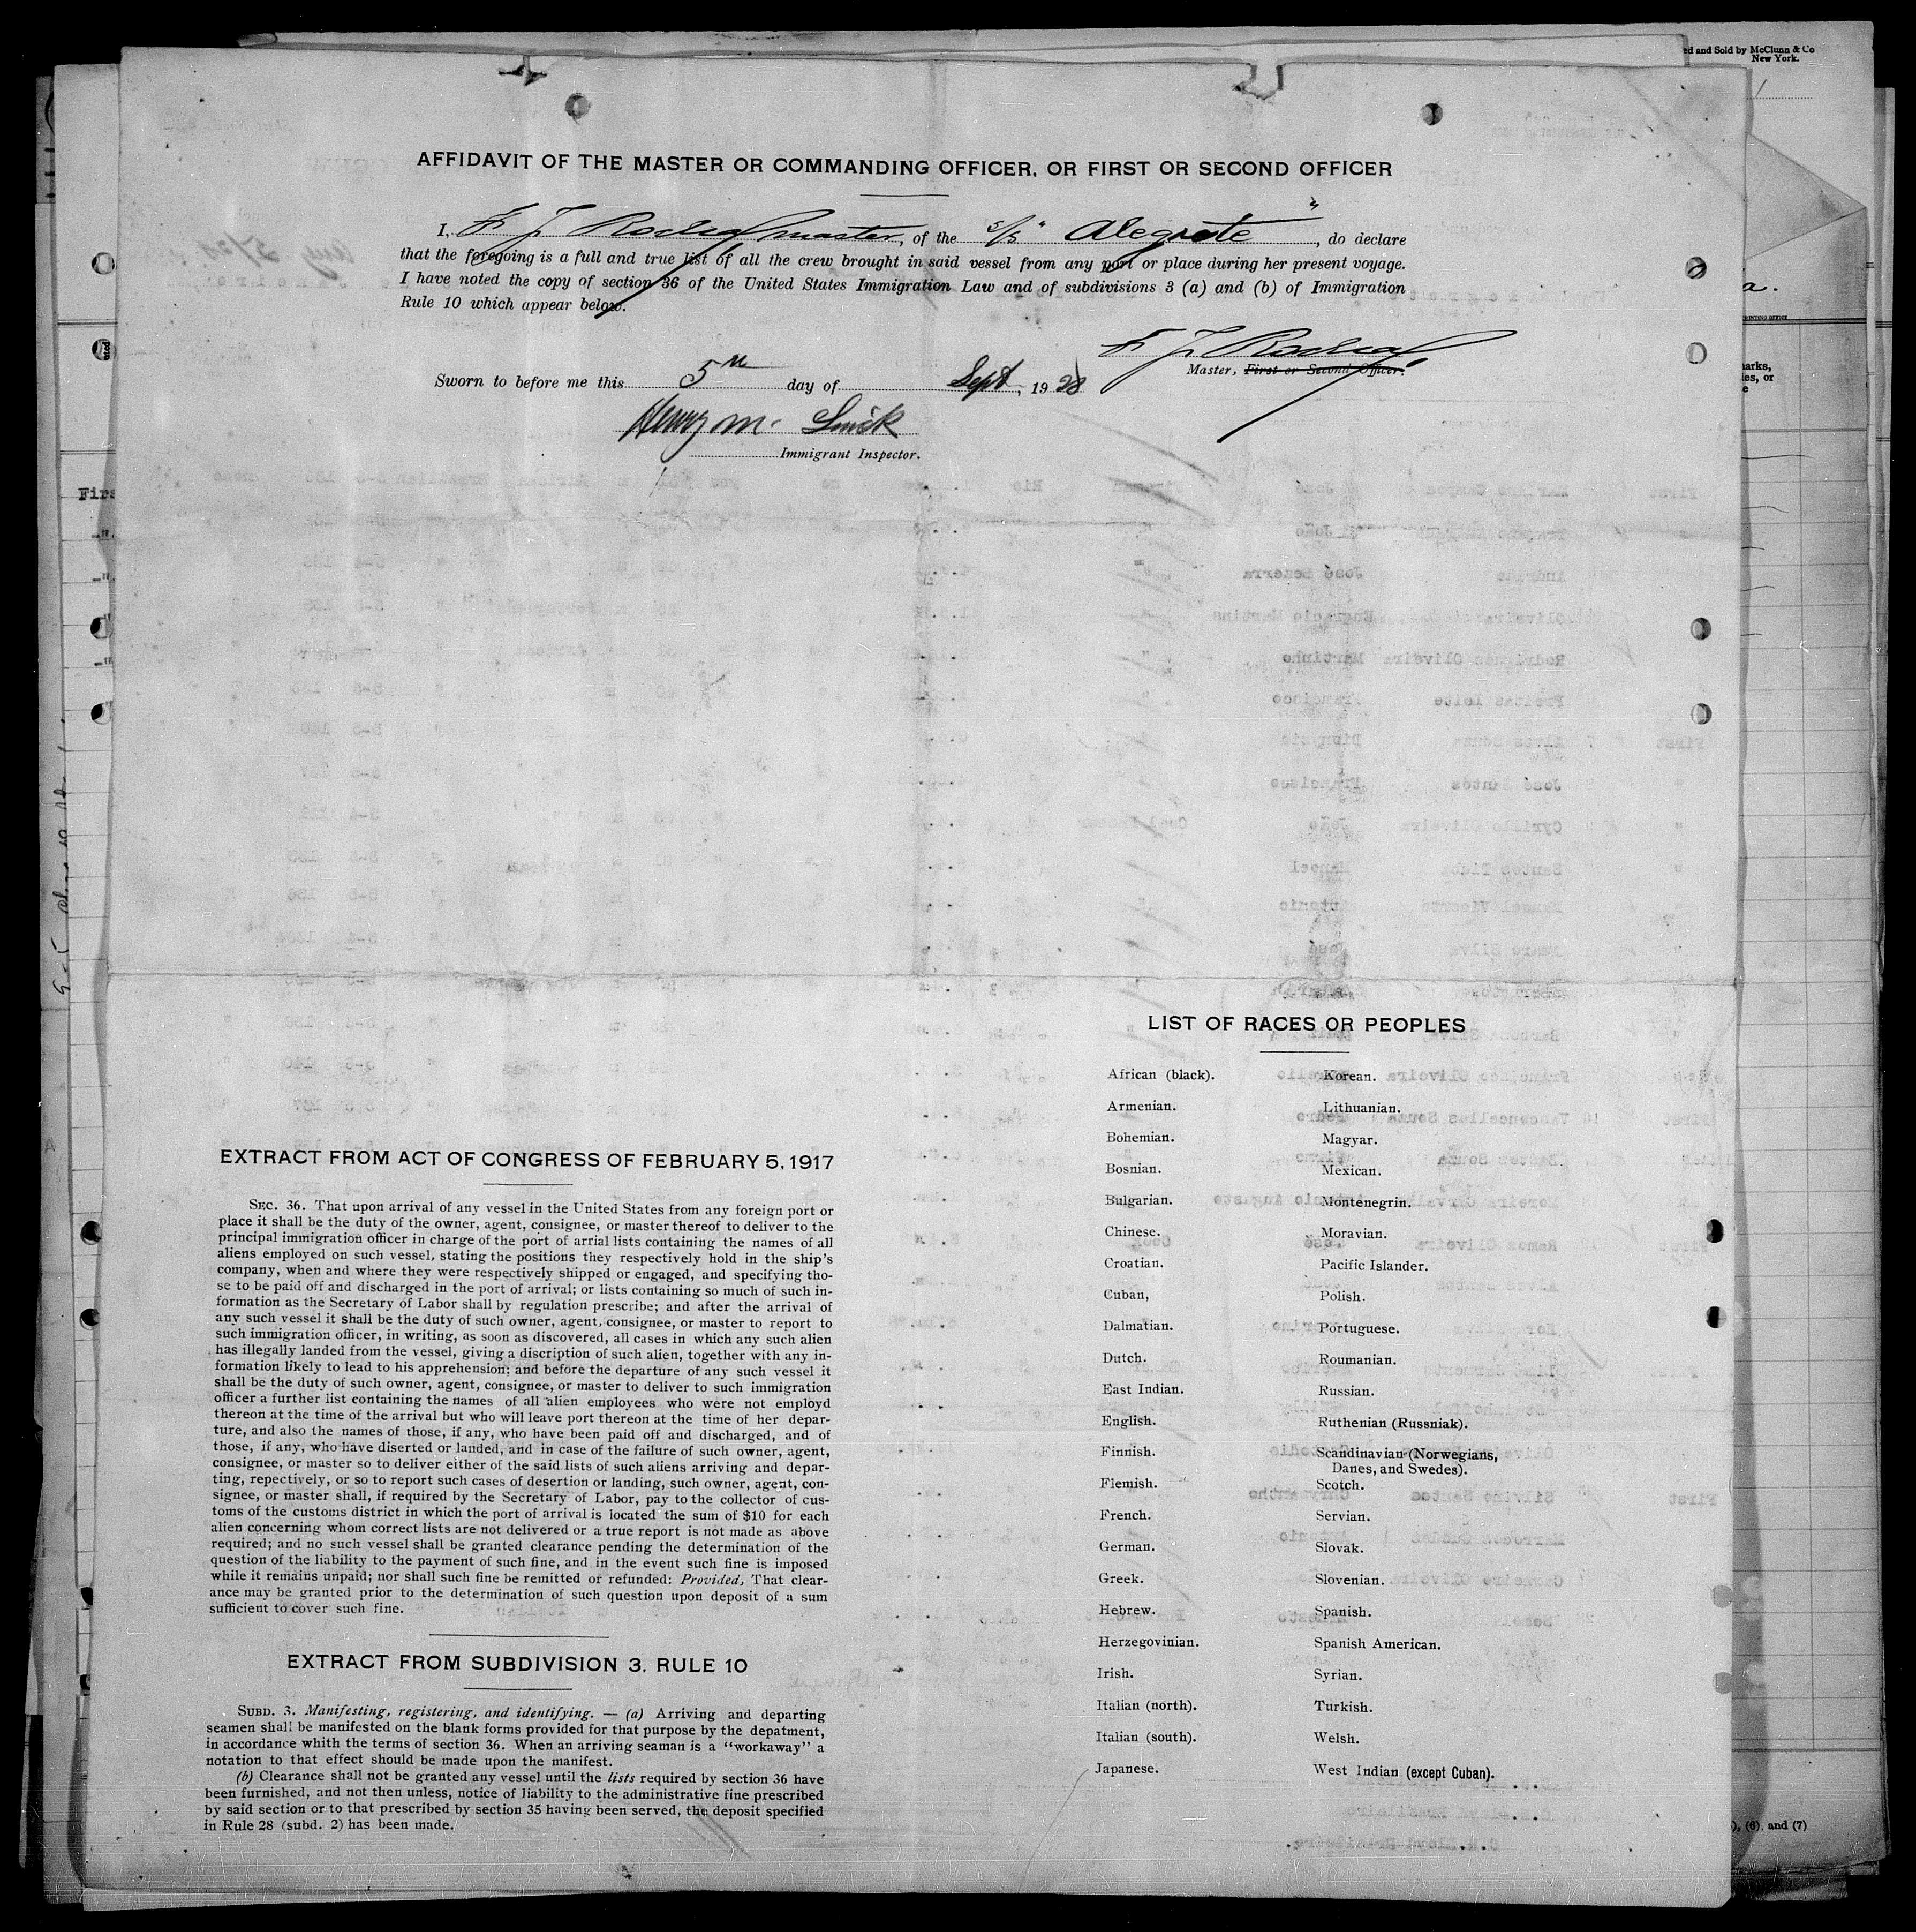 ed and Sold by McClunn & Co
New York.
AFFIDAVIT OF THE MASTER OR COMMANDING OFFICER, OR FIRST OR SECOND OFFICER
I, F. J. master, of the s/s "Alegrete", do declare
that the foregoing is a full and true list of all the crew brought in said vessel from any port or place during her present voyage.
I have noted the copy of section 36 of the United States Immigration Law and of subdivisions 3 (a) and (b) of Immigration
Rule 10 which appear below.
F. J.
Master, First or Second Officer.
Sworn to before me this 5th day of Sept, 1928
Henry M.
Immigrant Inspector.
LIST OF RACES OR PEOPLES
African (black).
Armenian.
Bohemian.
Bosnian.
Bulgarian.
Chinese.
Croatian.
Cuban,
Dalmatian.
Dutch.
East Indian.
English.
Finnish.
Flemish.
French.
German.
Greek.
Hebrew.
Herzegovinian.
Irish.
Italian (north).
Italian (south).
Japanese.
Korean.
Lithuanian.
Magyar.
Mexican.
Montenegrin.
Moravian.
Pacific Islander.
Polish.
Portuguese.
Roumanian.
Russian.
Ruthenian (Russniak).
Scandinavian (Norwegians,
Danes, and Swedes).
Scotch.
Servian.
Slovak.
Slovenian.
Spanish.
Spanish American.
Syrian.
Turkish.
Welsh.
West Indian (except Cuban).
EXTRACT FROM ACT OF CONGRESS OF FEBRUARY 5, 1917
SEC. 36. That upon arrival of any vessel in the United States from any foreign port or
place it shall be the duty of the owner, agent, consignee, or master thereof to deliver to the
principal immigration officer in charge of the port of arrial lists containing the names of all
aliens employed on such vessel, stating the positions they respectively hold in the ship's
company, when and where they were respectively shipped or engaged, and specifying tho-
se to be paid off and discharged in the port of arrival; or lists containing so much of such in-
formation as the Secretary of Labor shall by regulation prescribe; and after the arrival of
any such vessel it shall be the duty of such owner, agent, consignee, or master to report to
such immigration officer, in writing, as soon as discovered, all cases in which any such alien
has illegally landed from the vessel, giving a discription of such alien, together with any in-
formation likely to lead to his apprehension; and before the departure of any such vessel it
shall be the duty of such owner, agent, consignee, or master to deliver to such immigration
officer a further list containing the names of all alien employees who were not employd
thereon at the time of the arrival but who will leave port thereon at the time of her depar-
ture, and also the names of those, if any, who have been paid off and discharged, and of
those, if any, who have diserted or landed, and in case of the failure of such owner, agent,
consignee, or master so to deliver either of the said lists of such aliens arriving and depar-
ting, repectively, or so to report such cases of desertion or landing, such owner, agent, con-
signee, or master shall, if required by the Secretary of Labor, pay to the collector of cus-
toms of the customs district in which the port of arrival is located the sum of $10 for each
alien concerning whom correct lists are not delivered or a true report is not made as above
required; and no such vessel shall be granted clearance pending the determination of the
question of the liability to the payment of such fine, and in the event such fine is imposed
while it remains unpaid; nor shall such fine be remitted or refunded: Provided, That clear-
ance may be granted prior to the determination of such question upon deposit of a sum
sufficient to cover such fine.
EXTRACT FROM SUBDIVISION 3, RULE 10
SUBD. 3. Manifesting, registering, and identifying. — (a) Arriving and departing
seamen shall be manifested on the blank forms provided for that purpose by the depatment,
in accordance whith the terms of section 36. When an arriving seaman is a "workaway" a
notation to that effect should be made upon the manifest.
(b) Clearance shall not be granted any vessel until the lists required by section 36 have
been furnished, and not then unless, notice of liability to the administrative fine prescribed
by said section or to that prescribed by section 35 having been served, the deposit specified
in Rule 28 (subd. 2) has been made.
), (6), and (7)